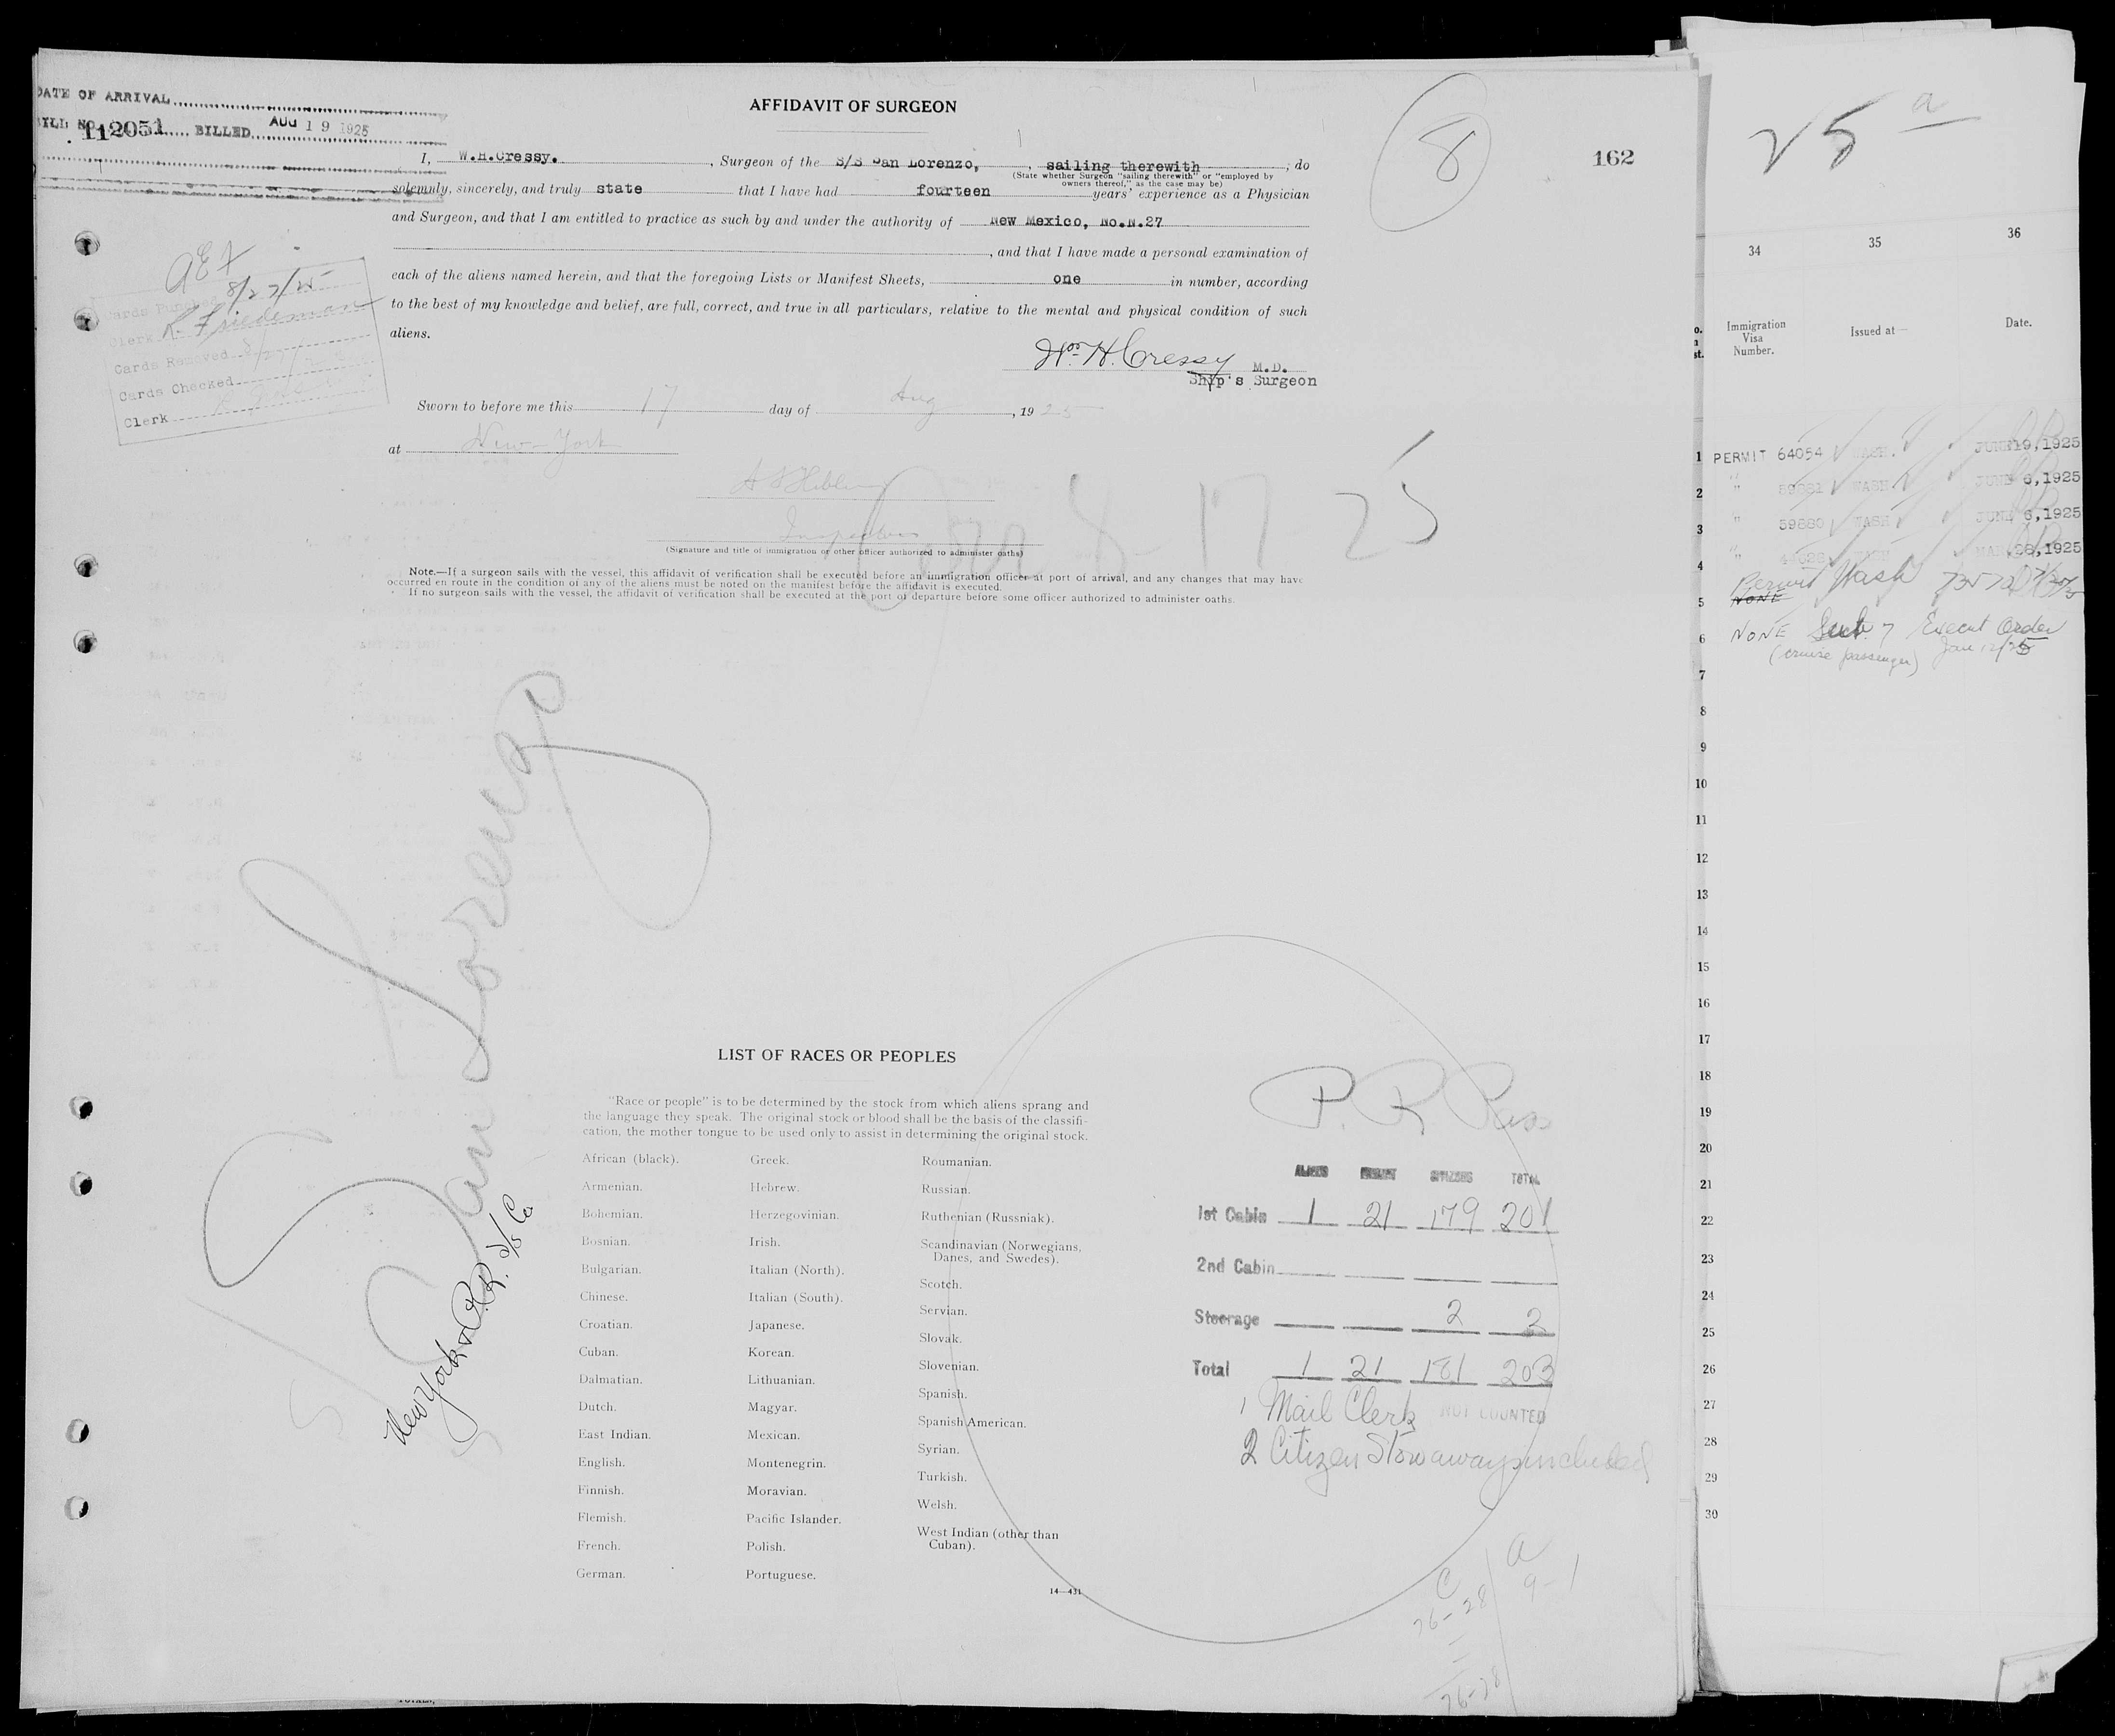 DATE OF ARRIVAL
BILL NO. 112051 BILLED AUG 19 1925
AFFIDAVIT OF SURGEON
8
162
I, W.H.Cressy. , Surgeon of the S/S San Lorenzo, , sailing therewith , do
(State whether Surgeon "sailing therewith" or "employed by
owners thereof," as the case may be)
solemnly, sincerely, and truly state that I have had fourteen years' experience as a Physician
and Surgeon, and that I am entitled to practice as such by and under the authority of New Mexico, No.N.27
, and that I have made a personal examination of
each of the aliens named herein, and that the foregoing Lists or Manifest Sheets, one in number, according
to the best of my knowledge and belief, are full, correct, and true in all particulars, relative to the mental and physical condition of such
aliens.
Wm. H. Cressy M.D.
Ship's Surgeon
Sworn to before me this 17 day of Aug , 1925
at New-York
Inspector
(Signature and title of immigration or other officer authorized to administer oaths)
8-17 25
Note.—If a surgeon sails with the vessel, this affidavit of verification shall be executed before an immigration officer at port of arrival, and any changes that may have
occurred en route in the condition of any of the aliens must be noted on the manifest before the affidavit is executed.
If no surgeon sails with the vessel, the affidavit of verification shall be executed at the port of departure before some officer authorized to administer oaths.
8/27/25
Cards Punched
Clerk K. Friedeman
Cards Removed
Cards Checked
Clerk
San Lorenzo
New York & P.R. S/S Co
LIST OF RACES OR PEOPLES
"Race or people" is to be determined by the stock from which aliens sprang and
the language they speak. The original stock or blood shall be the basis of the classifi-
cation, the mother tongue to be used only to assist in determining the original stock.
African (black).
Armenian.
Bohemian.
Bosnian.
Bulgarian.
Chinese.
Croatian.
Cuban.
Dalmatian.
Dutch.
East Indian.
English.
Finnish.
Flemish.
French.
German.
Greek.
Hebrew.
Herzegovinian.
Irish.
Italian (North).
Italian (South).
Japanese.
Korean.
Lithuanian.
Magyar.
Mexican.
Montenegrin.
Moravian.
Pacific Islander.
Polish.
Portuguese.
Roumanian.
Russian.
Ruthenian (Russniak).
Scandinavian (Norwegians,
Danes, and Swedes).
Scotch.
Servian.
Slovak.
Slovenian.
Spanish.
Spanish American.
Syrian.
Turkish.
Welsh.
West Indian (other than
Cuban).
14—431
P. R Pass
ALIENS CITIZENS TOTAL
1st Cabin 1 21 179 201
2nd Cabin
Steerage 2 2
Total 1 21 181 203
1 Mail Clerk NOT COUNTED
2 Citizen Stowaways included
C
76-28
76-28
a
9-1
25 a
34 35 36
Immigration
Visa
Number.
Issued at—
Date.
1 PERMIT 64054 WASH. JUNE 19, 1925
2 " 59881 WASH JUNE 6, 1925
3 " 59880 WASH JUNE 6, 1925
4 " MAR 28, 1925
Permit Wash
5 NONE
6 NONE Sect. 7 Execut Order
(cruise passenger) Jan 12/25
7
8
9
10
11
12
13
14
15
16
17
18
19
20
21
22
23
24
25
26
27
28
29
30